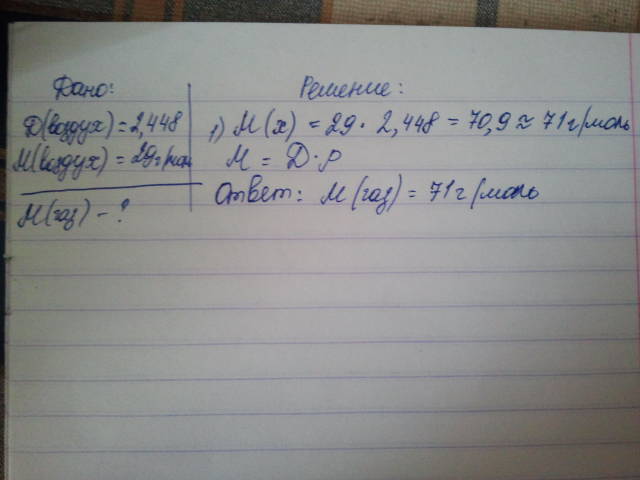 Дано:
Д(воздух) = 2,448
М(воздух) = 29 г/мол
М(газ) - ?
Решение:
1) М(х) = 29 · 2,448 = 70,9 ≈ 71 г/моль
М = Д · ρ
Ответ: М(газ) = 71 г/моль